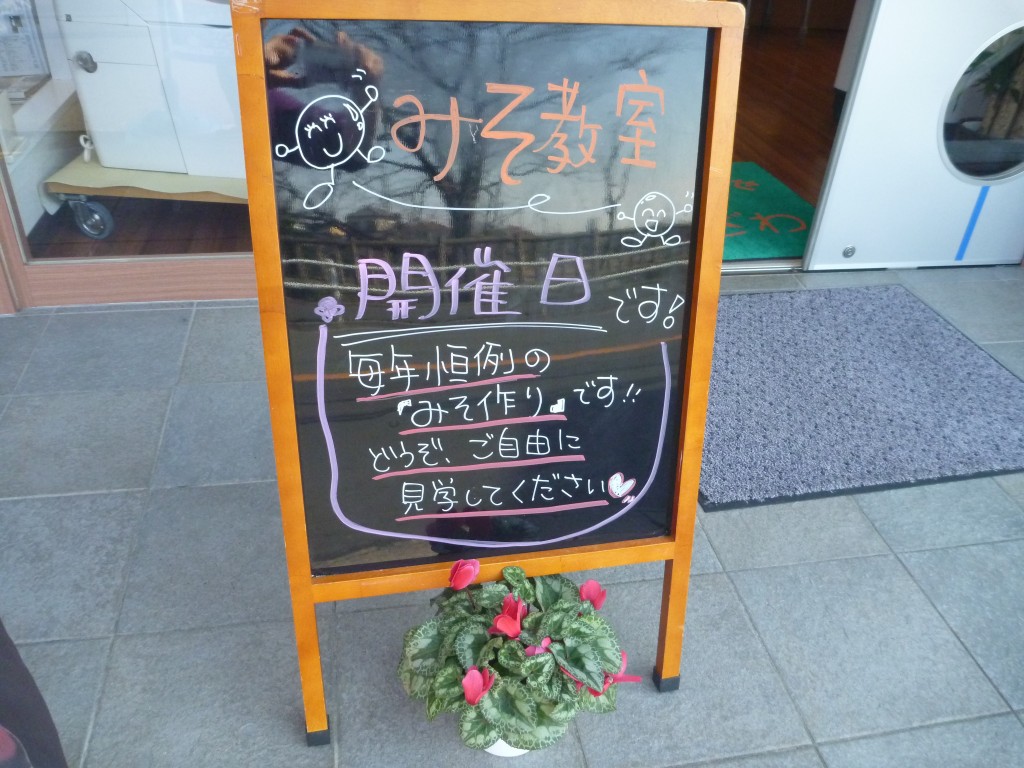 みそ教室
開催日です!
毎年恒例の
『みそ作り』です!!
どうぞ、ご自由に
見学してください